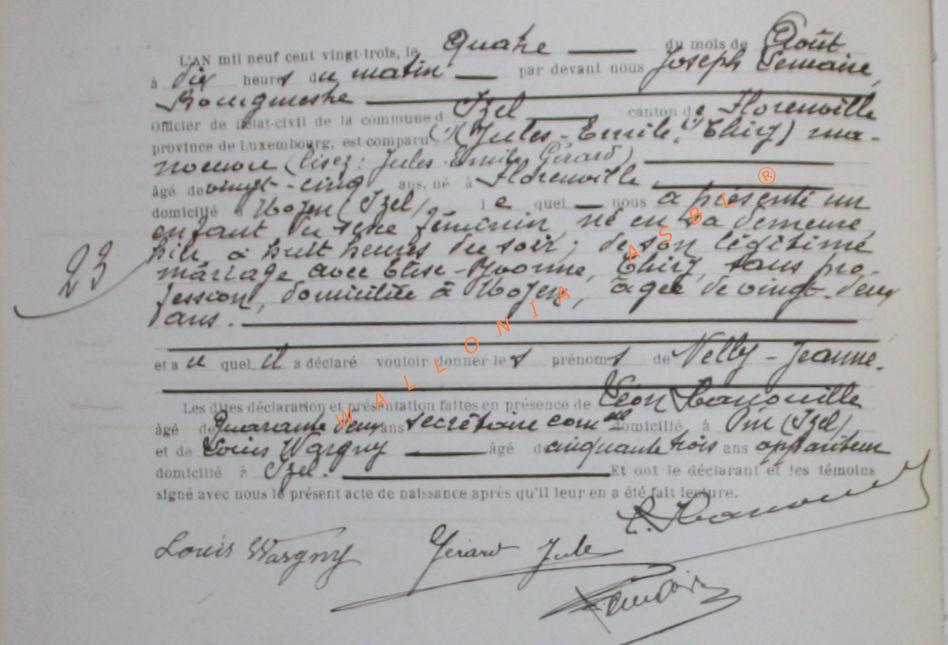 L'AN mil neuf cent vingt-trois, le quatre du mois de Août
à dix heures du matin par devant nous Joseph Lemaire,
Bourgmestre
Officier de l'état-civil de la commune d Izel canton de Florenville
province de Luxembourg, est comparu (Jules-Emile Thiry) ma-
noeuvre (lisez: Jules-Emile Gérard)
âgé de vingt-cinq ans, né à Florenville
domicilié à Moyen (Izel) le quel nous a présenté un
enfant du sexe féminin, né en sa demeure,
hier, à huit heures du soir; de son légitime
mariage avec Elise-Yvonne, Thiry, sans pro-
fession, domiciliée à Moyen, âgée de vingt-deux
ans.
23
et au quel il a déclaré vouloir donner les prénoms de Nelly-Jeanne.
Les dites déclaration et présentation faites en présence de Léon Hanouille
âgé de quarante deux ans secrétaire com^al domicilié à Pin (Izel)
et de Louis Wargny âgé de cinquante trois ans appariteur
domicilié à Izel. Et ont le déclarant et les témoins
signé avec nous le présent acte de naissance après qu'il leur en a été fait lecture.
Louis Wargny Gérard Jule
WALLONIA ASBL ®